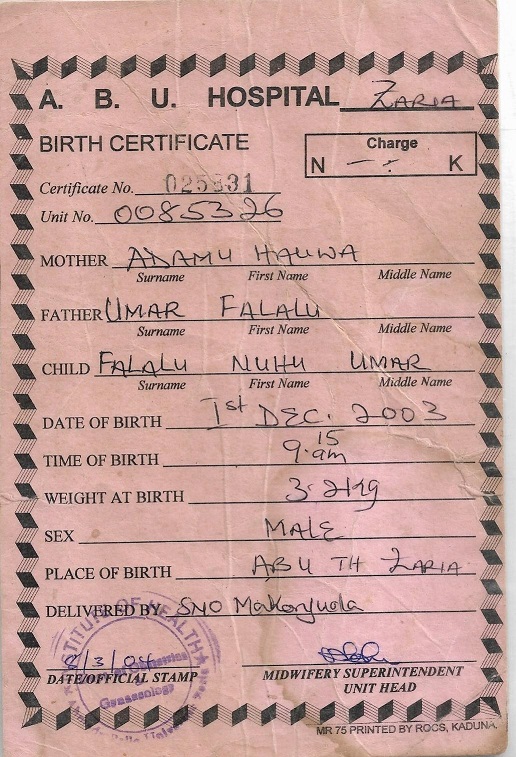 A. B. U. HOSPITAL ZARIA
BIRTH CERTIFICATE
Charge
N - : K
Certificate No. 025831
Unit No. 0085326
MOTHER ADAMU HAUWA
Surname First Name Middle Name
FATHER UMAR FALALU
Surname First Name Middle Name
CHILD FALALU NUHU UMAR
Surname First Name Middle Name
DATE OF BIRTH 1st DEC. 2003
TIME OF BIRTH 9.15 am
WEIGHT AT BIRTH 3.2kg
SEX MALE
PLACE OF BIRTH ABU TH ZARIA
DELIVERED BY SNO
INSTITUTE OF HEALTH
Gynaecology
8/3/04
DATE/OFFICIAL STAMP
MIDWIFERY SUPERINTENDENT
UNIT HEAD
MR 75 PRINTED BY ROCS, KADUNA.